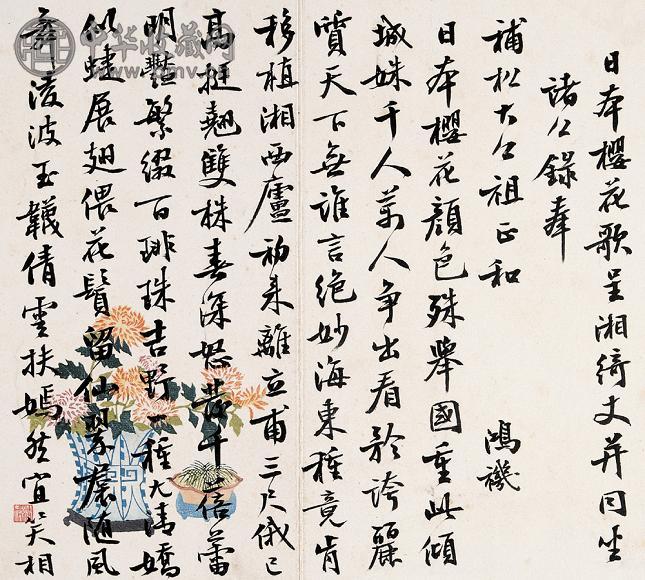 日本櫻花歌呈湘綺丈并同坐
諸公錄奉
補松大公祖正和
鴻禨
日本櫻花顏色殊舉國重此傾
城姝千人萬人爭出看矜誇麗
質天下無誰言絕妙海東種竟肯
移植湘西廬初来離立甫三尺俄已
高挺翹雙株春深怒發千蓓蕾
明豔繁綴百琲珠吉野一種尤清嬌
似蛙展翅偎花鬚留仙翠裊隨風
舞淩波玉韈倩雲扶嫣然宜笑相
中华收藏网